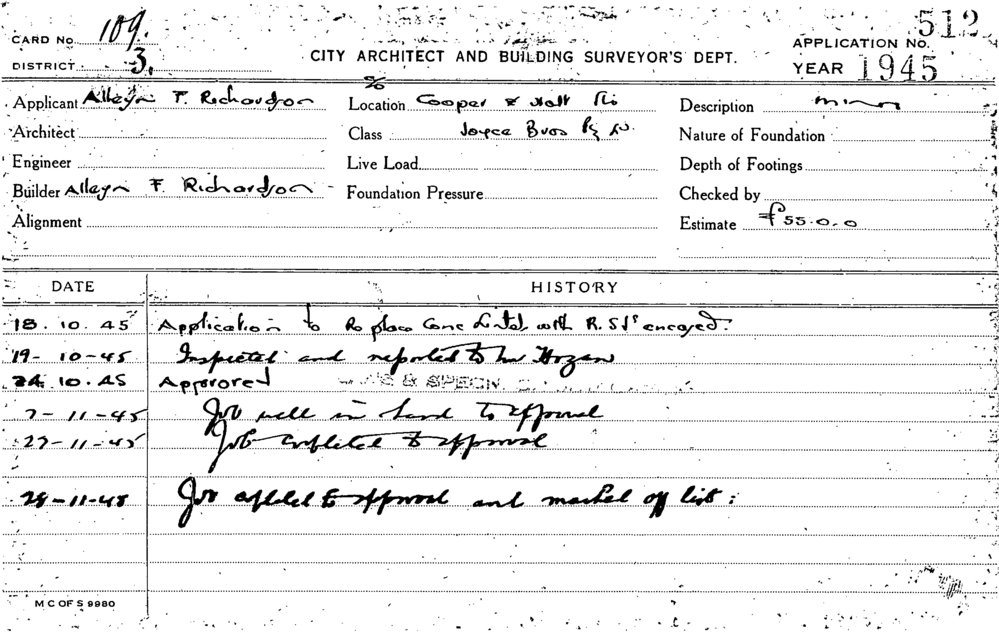 CARD No. 109.
DISTRICT 3.
CITY ARCHITECT AND BUILDING SURVEYOR'S DEPT.
APPLICATION No. 512
YEAR 1945
Applicant Alleyn F. Richardson
Location Cooper & Holt Sts
Description minor
Architect
Class Joyce Bros Pty
Nature of Foundation
Engineer
Live Load
Depth of Footings
Builder Alleyn F. Richardson
Foundation Pressure
Checked by
Alignment
Estimate £55.0.0
DATE HISTORY
18.10.45 Application to Replace Conc Lintel with R.S.Js encased.
19-10-45 Inspected and reported to Mr Hogan
24.10.45 Approved & SPECN
7-11-45 Job well in hand to approval
27-11-45 Job completed to approval
28-11-45 Job completed to approval and marked off list:
M C OF S 9980